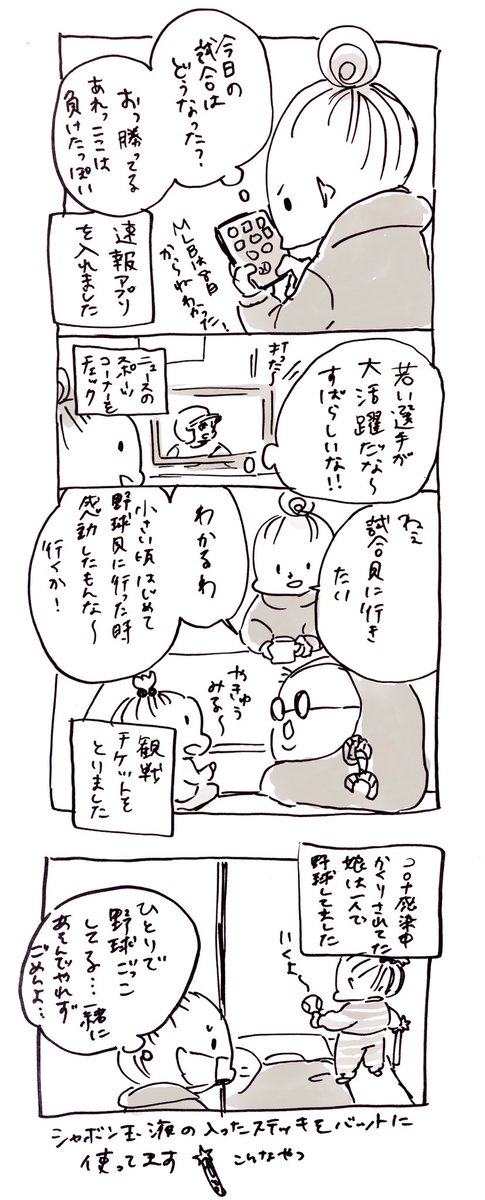 今日の
試合は
どうなった？
おっ勝ってる
あれっここは
負けたっぽい
MLBは今日
からね わかった！
速報アプリ
を入れました
若い選手が
大活躍だな〜
すばらしいな!!
打った〜
ニュースの
スポーツ
コーナーを
チェック
ねえ
試合見に行き
たい
わかるわ
小さい頃はじめて
野球見に行った時
感動したもんな〜
行くか！
やきゅう
みる〜
観戦
チケットを
とりました
コロナ感染中
かくりされてた
娘は一人で
野球してました
いくよー
ひとりで
野球ごっこ
してる…一緒に
あそんでやれず
ごめんよ…
シャボン玉液の入ったステッキをバットに
使ってます こんなやつ